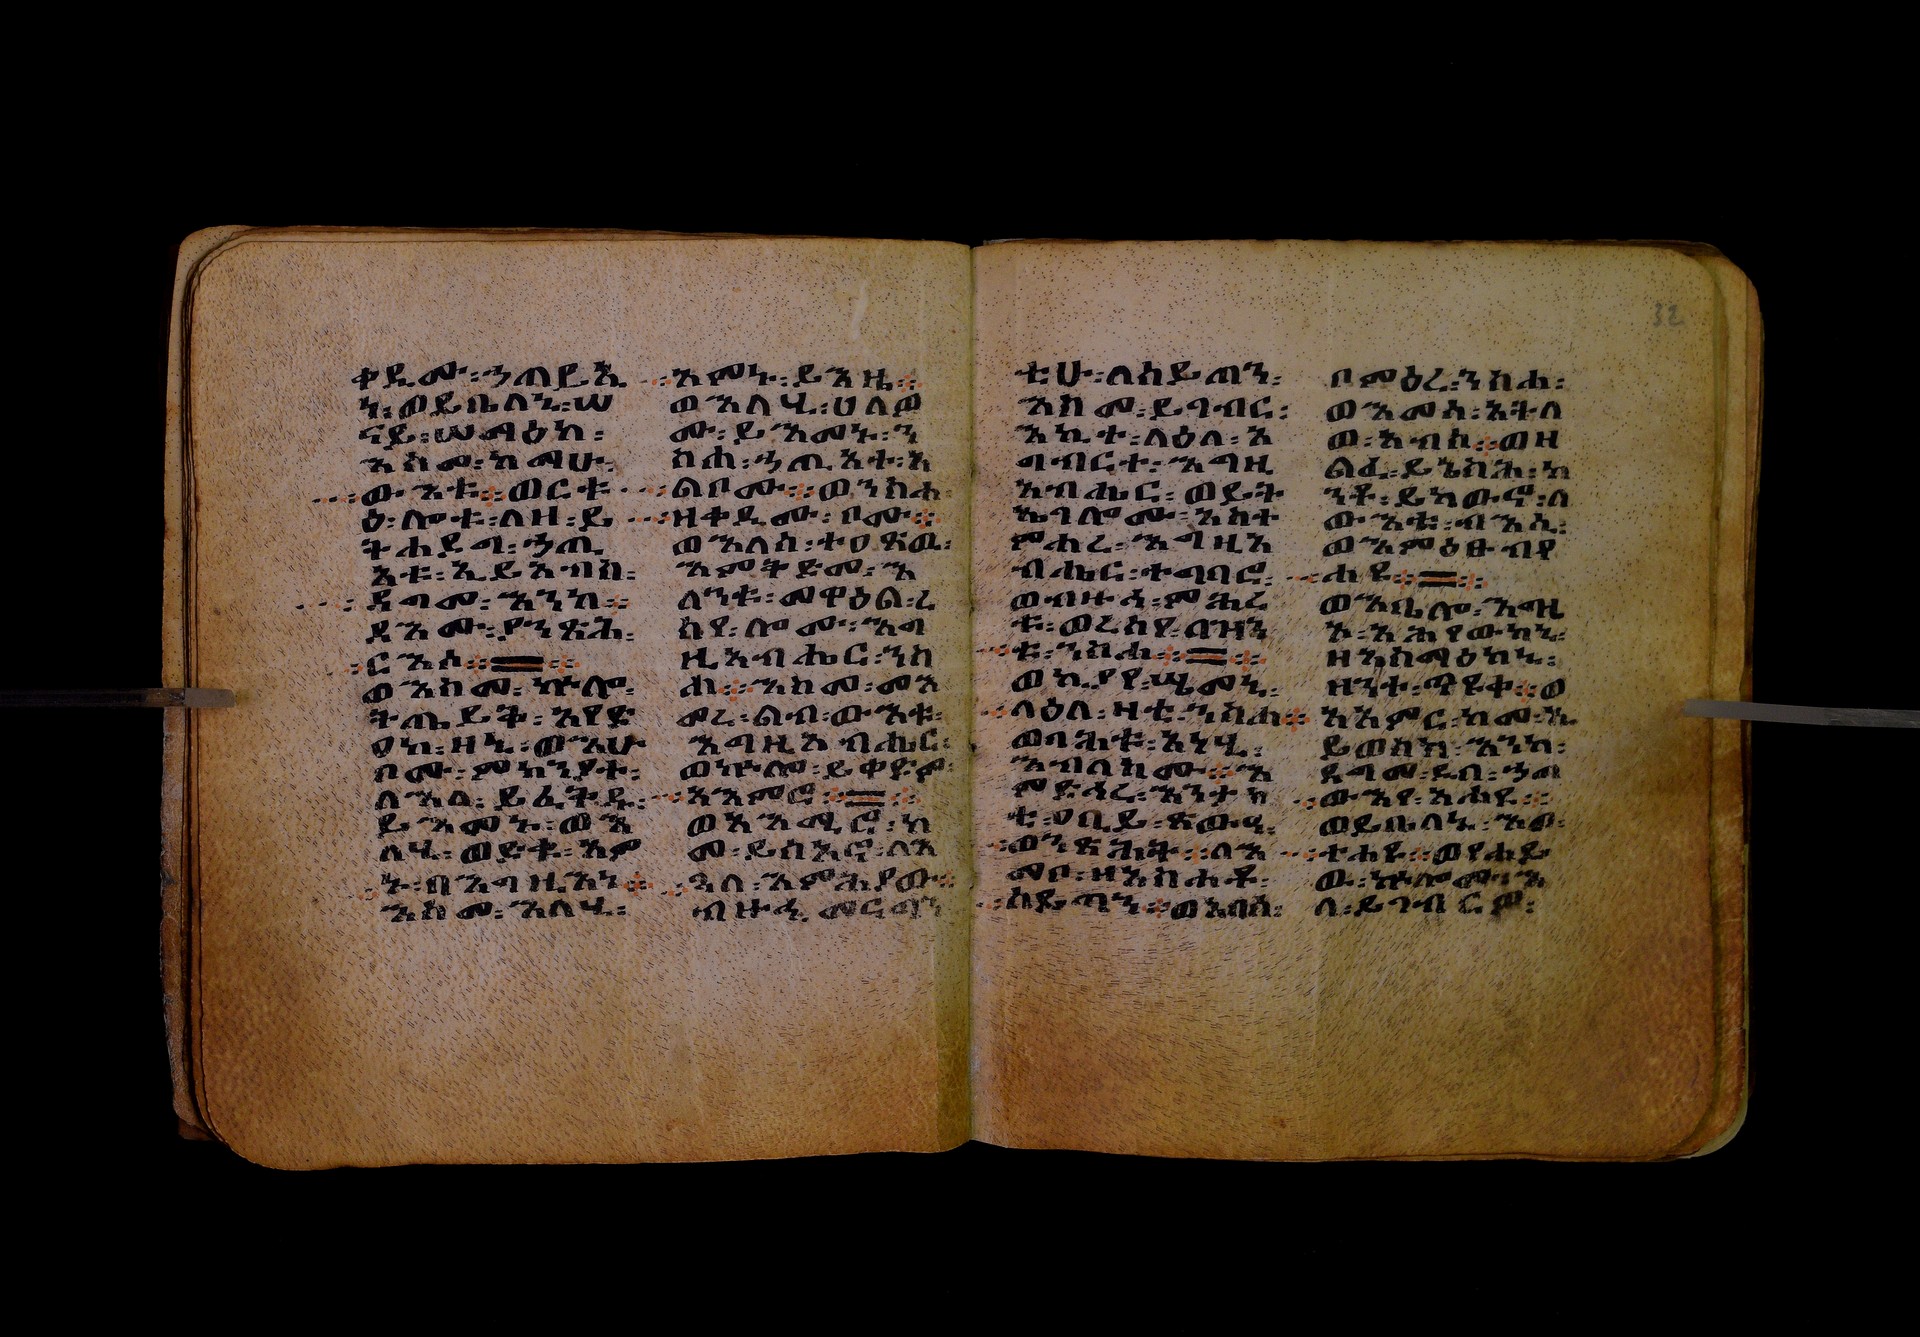 ቀዲሙ፡ኃጢይእ
ን፡ወይቤለኒ፡ሠ
ናይ፡ሠማዕከ፡
እስመ፡ከማሁ፡
ውእቱ፡ወርቱ
ዕ፡ሎቱ፡ለዘ፡ይ
ትሐየግ፡ኃጢ
አቱ፡ኢይአብስ፡
ዳግመ፡እንከ፡
ዳእሙ፡ያንጽሕ፡
ርእሰ፡
ወእስመ፡ኵሎ፡
ትጤይቅ፡አየድ
ዐከ፡ዘኒ፡ወእሁ
በሙ፡ምክንያተ፡
ለእለ፡
ይእመኑ፡ወእ
ለሂ፡ወድቁ፡አም
ኑ፡በእግዚእነ፡
እስመ፡እለሂ፡
አምኑ፡ይእዜ፡
ወእለሂ፡ሀለወ
ሙ፡ይእመኑ፡ን
ስሐ፡ኃጢአተ፡አ
ልቦሙ፡ወንስሐ፡
ዘቀዲሙ፡ቦሙ፡
ወእለሰ፡ተፀውዑ፡
እምቅድመ፡እ
ላንቱ፡መዋዕል፡ረ
ሰየ፡ሎሙ፡እግ
ዚአብሔር፡ንስ
ሐ፡እስመ፡መአ
መረ፡ልብ፡ውእቱ፡
እግዚአብሔር፡
ወኵሎ፡ይቀድም፡
አእምሮ፡
ወአእሚሮ፡ከ
መ፡ይስእኖ፡ለእ
ጓለ፡እምሕያው፡
ብዙኃ፡
ቲሁ፡ለሰይጣን፡
እከመ፡ይገብር፡
እኪተ፡ላዕለ፡አ
ግብርተ፡እግዚ
አብሔር፡ወይት
ኤገሎሙ፡እስተ
ምሐረ፡እግዚአ
ብሔር፡ተግባሮ፡
ወብዙኃ፡ምሕረ
ቱ፡ወረሰየ፡ባዝን
ቱ፡ንስሐ፡
ወኪያየ፡ሤመኒ፡
ላዕለ፡ዛቲ፡ንስሐ፡
ወባሕቱ፡እነሂ፡
እብለከሙ፡እ
ምድኅረ፡እንታክ
ቲ፡ዐቢይ፡ጽውዓ፡
ወንጽሕት፡ለእ
መቦ፡ዘአስሐቶ፡
ሰይጣን፡ወአባሰ፡
32
በምዕረ፡ንስሐ፡
ወእመሰ፡አትለ
ወ፡አብሰ፡ወዘ
ልፈ፡ይኔስሕ፡ከ
ንቶ፡ይከውኖ፡ለ
ውእቱ፡ብእሲ፡
ወእምዕፁብ፡የ
ሐዩ፡
ወእቤሎ፡እግዚ
እ፡አሕየወከኒ፡
ዘንተ፡ጥዩቀ፡ወ
አአምር፡ከመ፡ኢ
ይወስክ፡እንከ፡
ዳግመ፡ዲበ፡
አሐዩ፡
ወይቤለኒ፡እወ፡
ተሐዩ፡ወየሐይ
ው፡ኵሎሙ፡እ
ለ፡ይገብርዎ፡